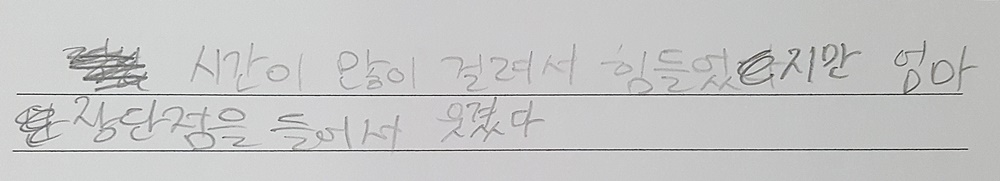 시간이 많이 걸려서 힘들었지만 엄마
장단점을 들어서 웃겼다